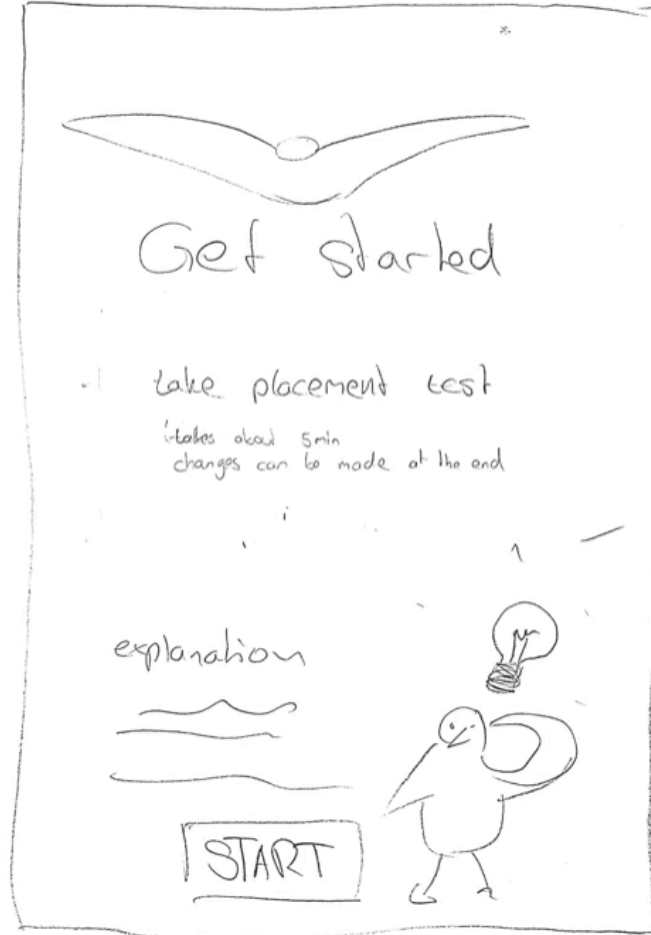 Get started
take placement test
takes about 5min
changes can be made at the end
explanation
START